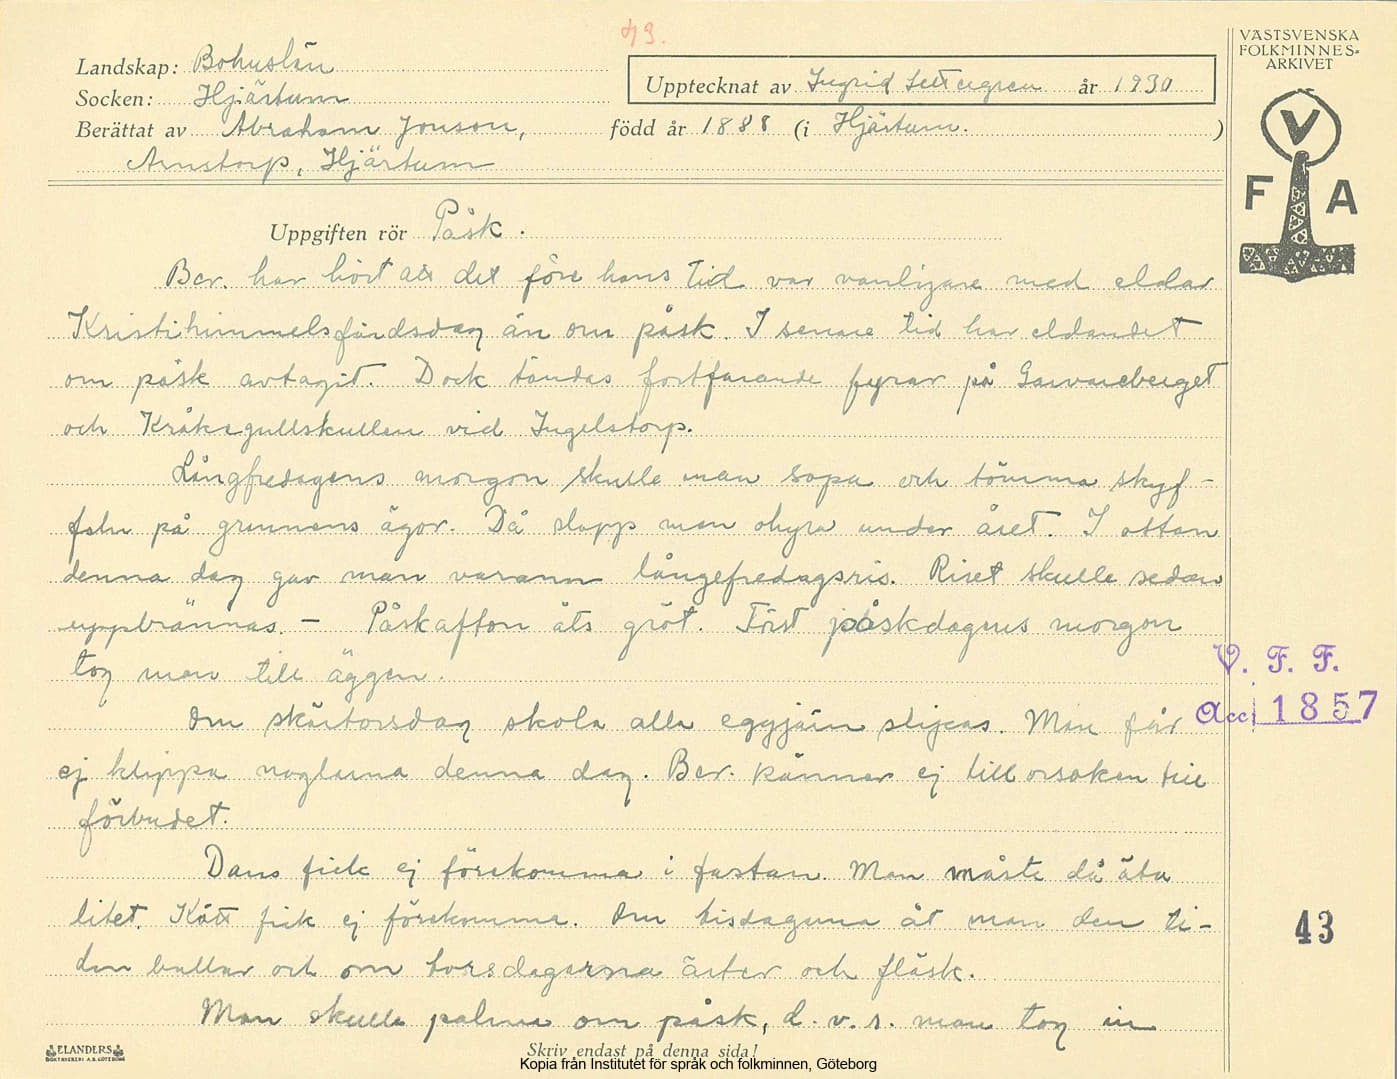 43.
VÄSTSVENSKA
FOLKMINNES-
ARKIVET
Landskap: Bohuslän
Socken: Hjärtum
Upptecknat av Ingrid Settergren år 1930
Berättat av Abraham Jonson, född år 1888 (i Hjärtum.)
Arnstorp, Hjärtum
V
F A
Uppgiften rör Påsk.
Ber. har hört att det före hans tid var vanligare med eldar
Kristihimmelsfärdsdag än om påsk. I senare tid har eldandet
om påsk avtagit. Dock tändas fortfarande fyrar på Garvareberget
och Kråkegullskullen vid Ingelstorp.
Långfredagens morgon skulle man sopa och tömma skyf-
feln på grannens ägor. Då slapp man ohyra under året. I ottan
denna dag gav man varann långefredagsris. Riset skulle sedan
uppbrännas. - Påskafton äts gröt. Först påskdagens morgon
tog man till äggen.
V. F. F.
Acc. 1857
Om skärtorsdag skola alla eggjärn slipas. Man får
ej klippa naglarna denna dag. Ber. känner ej till orsaken till
förbudet.
Dans fick ej förekomma i fastan. Man måste då äta
litet. Kött fick ej förekomma. Om tisdagarna åt man den ti-
den bullar och om torsdagarna ärter och fläsk.
43
Man skulle palma om påsk, d.v.s. man tog in
ELANDERS
BOKTRYCKERI A.B. GÖTEBORG
Skriv endast på denna sida!
Kopia från Institutet för språk och folkminnen, Göteborg